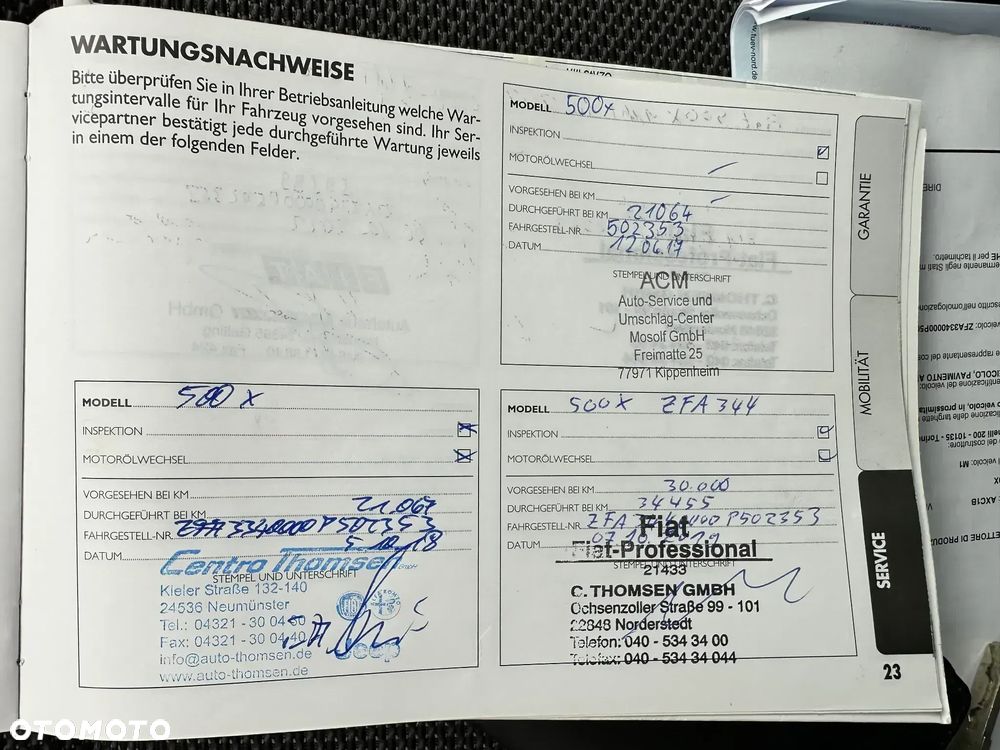 WARTUNGSNACHWEISE
Bitte überprüfen Sie in Ihrer Betriebsanleitung welche War-
tungsintervalle für Ihr Fahrzeug vorgesehen sind. Ihr Ser-
vicepartner bestätigt jede durchgeführte Wartung jeweils
in einem der folgenden Felder.
MODELL 500X
INSPEKTION
MOTORÖLWECHSEL
VORGESEHEN BEI KM
DURCHGEFÜHRT BEI KM 21064
FAHRGESTELL-NR. 502353
DATUM 12.04.17
STEMPEL UND UNTERSCHRIFT
ACM
Auto-Service und
Umschlag-Center
Mosolf GmbH
Freimatte 25
77971 Kippenheim
MODELL 500 X
INSPEKTION
MOTORÖLWECHSEL
VORGESEHEN BEI KM
DURCHGEFÜHRT BEI KM 21.067
FAHRGESTELL-NR. ZFA3340000P502353
DATUM 5.10.18
Centro Thomsen GmbH
STEMPEL UND UNTERSCHRIFT
Kieler Straße 132-140
24536 Neumünster
Tel.: 04321 - 30 04 30
Fax: 04321 - 30 04 40
info@auto-thomsen.de
www.auto-thomsen.de
Jeep
MODELL 500X ZFA 344
INSPEKTION
MOTORÖLWECHSEL
VORGESEHEN BEI KM 30.000
DURCHGEFÜHRT BEI KM 34455
FAHRGESTELL-NR. ZFA P502353
DATUM
Fiat
Fiat-Professional
STEMPEL UND UNTERSCHRIFT
21433
C. THOMSEN GMBH
Ochsenzoller Straße 99 - 101
22848 Norderstedt
Telefon: 040 - 534 34 00
Telefax: 040 - 534 34 044
GARANTIE
MOBILITÄT
SERVICE
23
www.tuev-nord.de
OTOMOTO